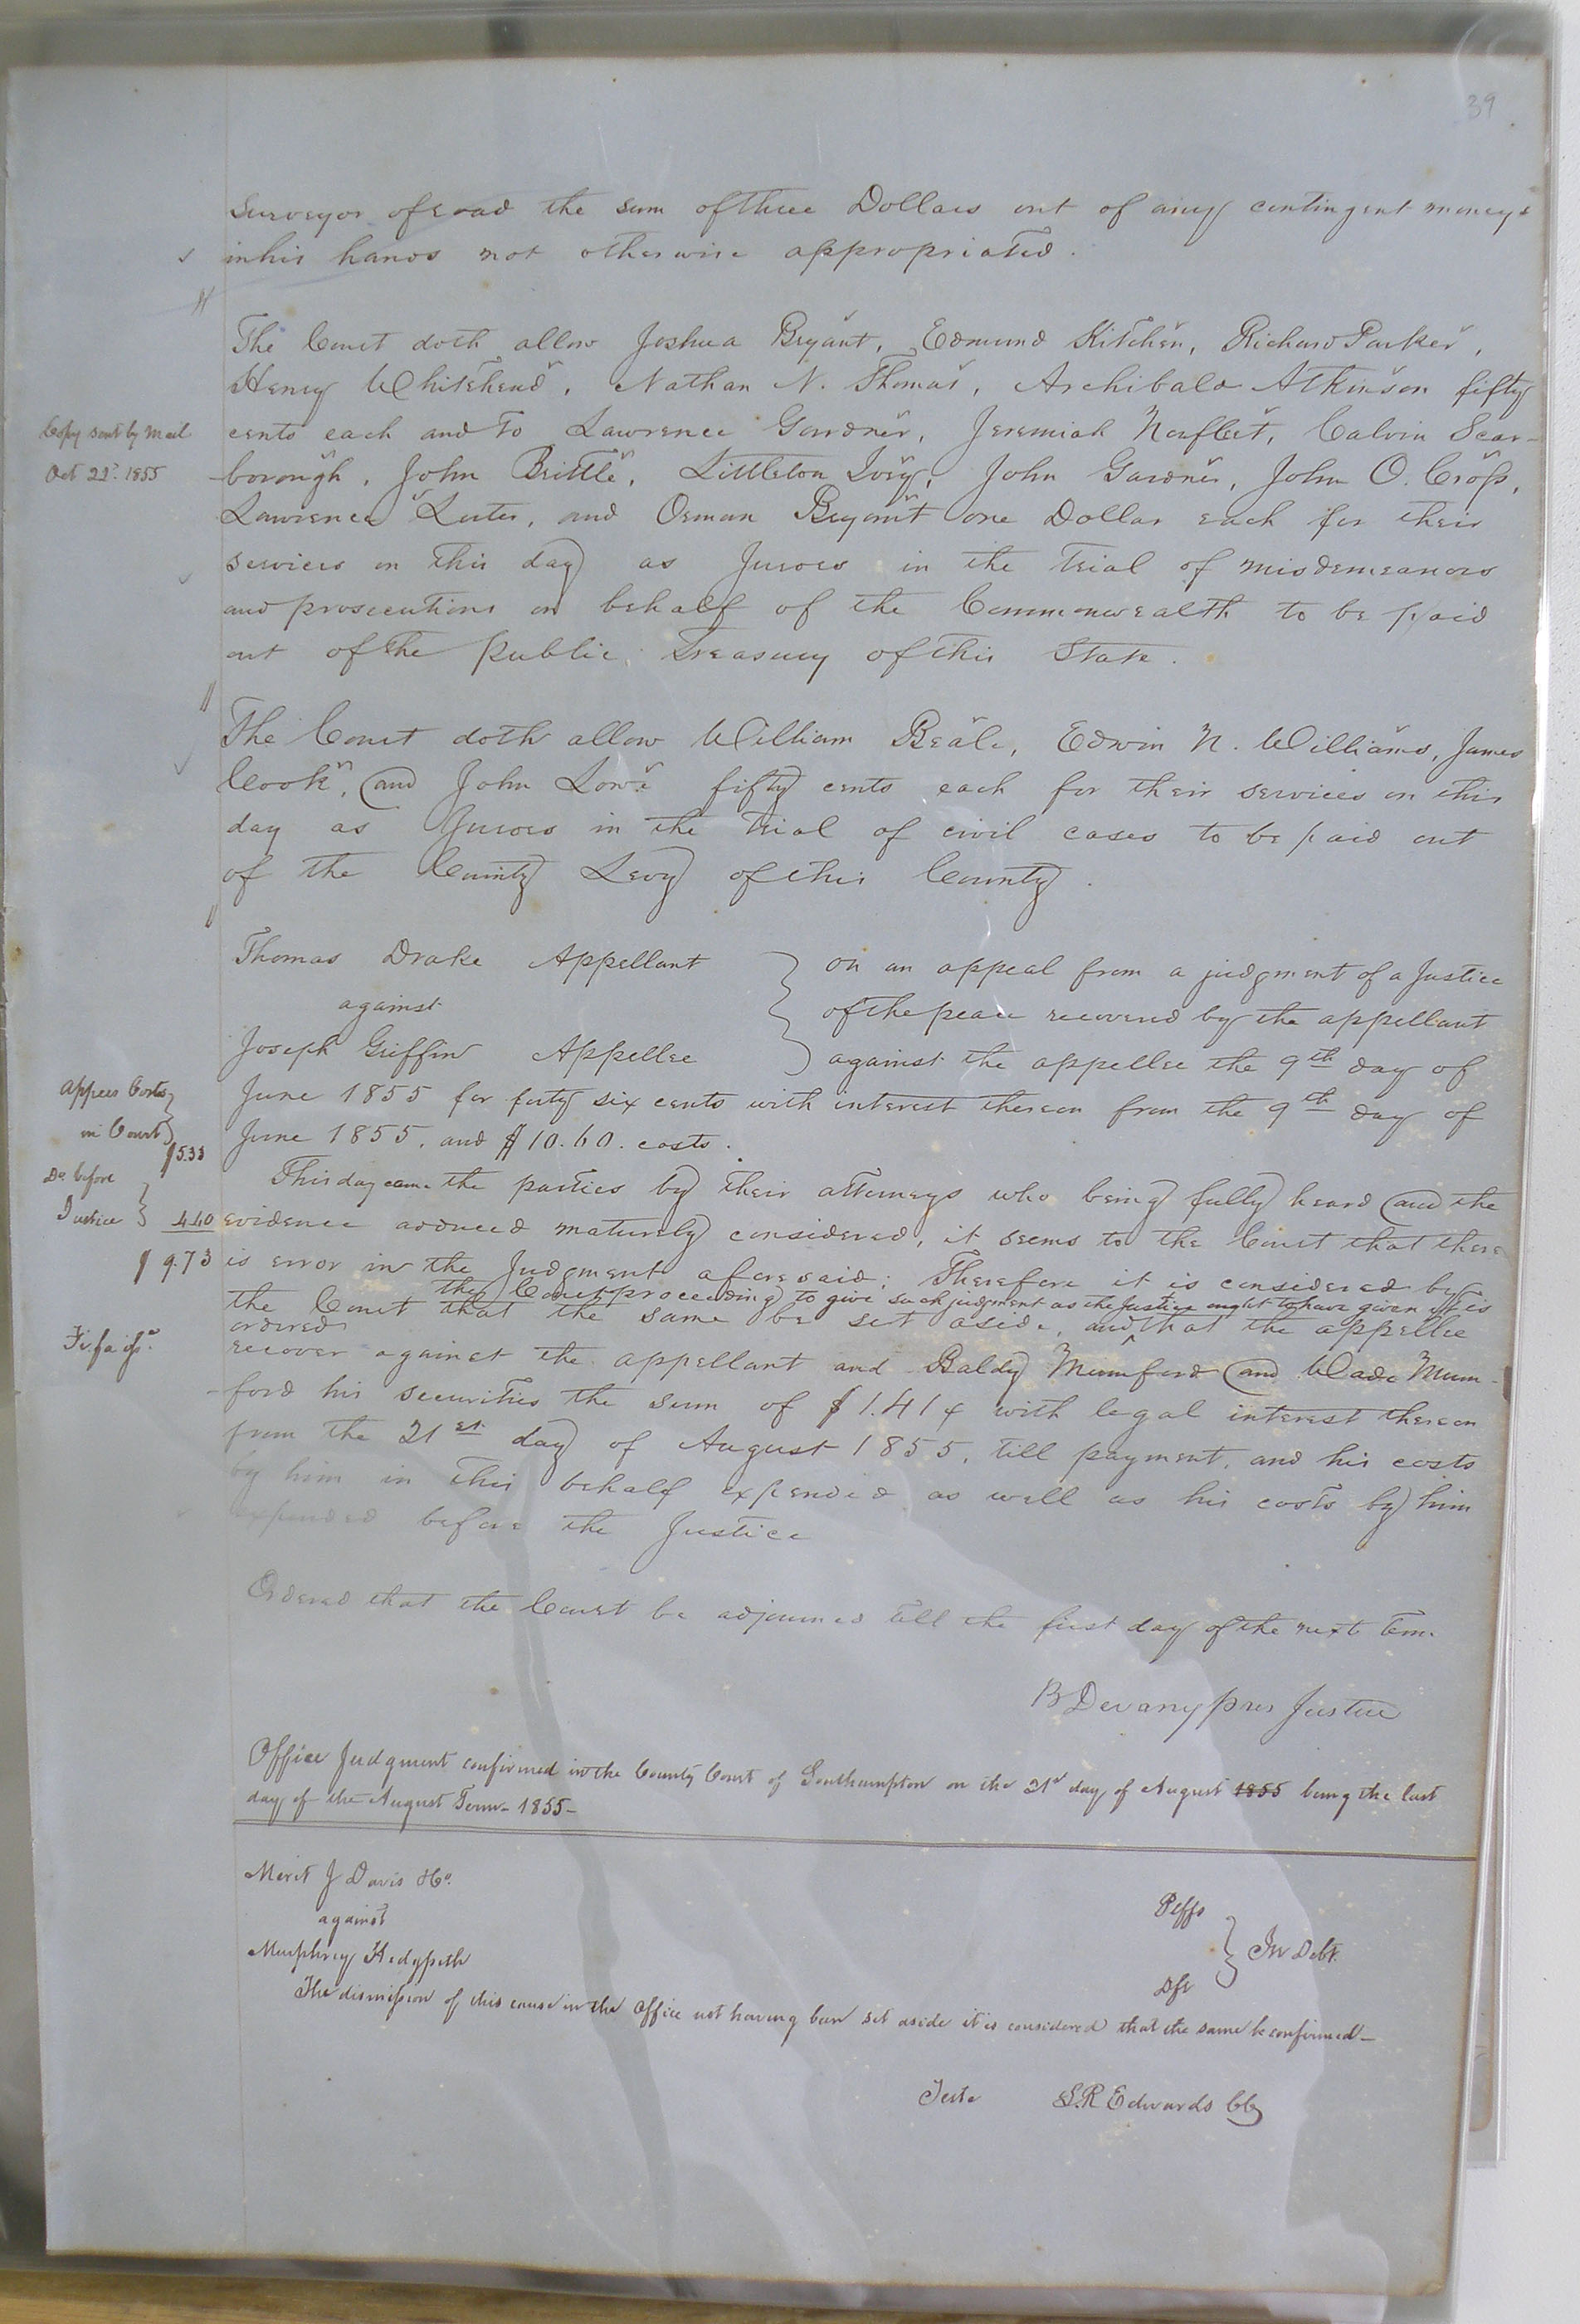 39
Surveyor of road the sum of three Dollars out of any contingent moneys
in his hands not otherwise appropriated.
The Court doth allow Joshua Bryant, Edmund Kitchen, Richard Parker,
Henry Whitehead, Nathan N. Thomas, Archibald Atkinson fifty
Copy sent by Mail
Oct 22d. 1855
cents each and to Lawrence Gardner, Jeremiah Norfleet, Calvin Scar-
borough, John Brittle, Littleton Ivey, John Gardner, John O. Cross,
Lawrence Lester, and Osman Bryant one Dollar each for their
services on this day as Jurors in the trial of misdemeanors
and prosecutions on behalf of the Commonwealth to be paid
out of the public Treasury of this State.
The Court doth allow William Beale, Edwin N. Williams, James
Cook, and John Lowe fifty cents each for their services on this
day as Jurors in the trial of civil cases to be paid out
of the County Levy of this County.
Thomas Drake Appellant
against
Joseph Griffin Appellee
on an appeal from a judgment of a Justice
of the peace recovered by the appellant
against the appellee the 9th day of
June 1855 for forty six cents with interest thereon from the 9th day of
June 1855. and $10.60. costs.
Appees Costs
in Court
$5.33
Do. before
Justice
4.40
$ 9.73
This day came the parties by their attorneys who being fully heard and the
evidence adduced maturely considered, it seems to the Court that there
is error in the Judgment aforesaid: Therefore it is considered by
the Court that the same be set aside, and the Court proceeding to give such judgment as the Justice ought to have given it is
ordered that the appellee
Fi. fa
recover against the appellant and Baldy Mumford and Wade Mum-
ford his securities the sum of $1.41¢ with legal interest thereon
from the 21st day of August 1855, till payment, and his costs
by him in this behalf expended as well as his costs by him
expended before the Justice
Ordered that the Court be adjourned till the first day of the next Term.
B Devany pres Justice
Office Judgment confirmed in the County Court of Southampton on the 21st day of August 1855 being the last
day of the August Term - 1855 -
Merit J Davis &Co.
against
Murphrey Hedgpeth
Plffs
Dft
In Debt.
The dismission of this cause in the office not having been set aside it is considered that the same be confirmed -
Teste
L.R Edwards CC